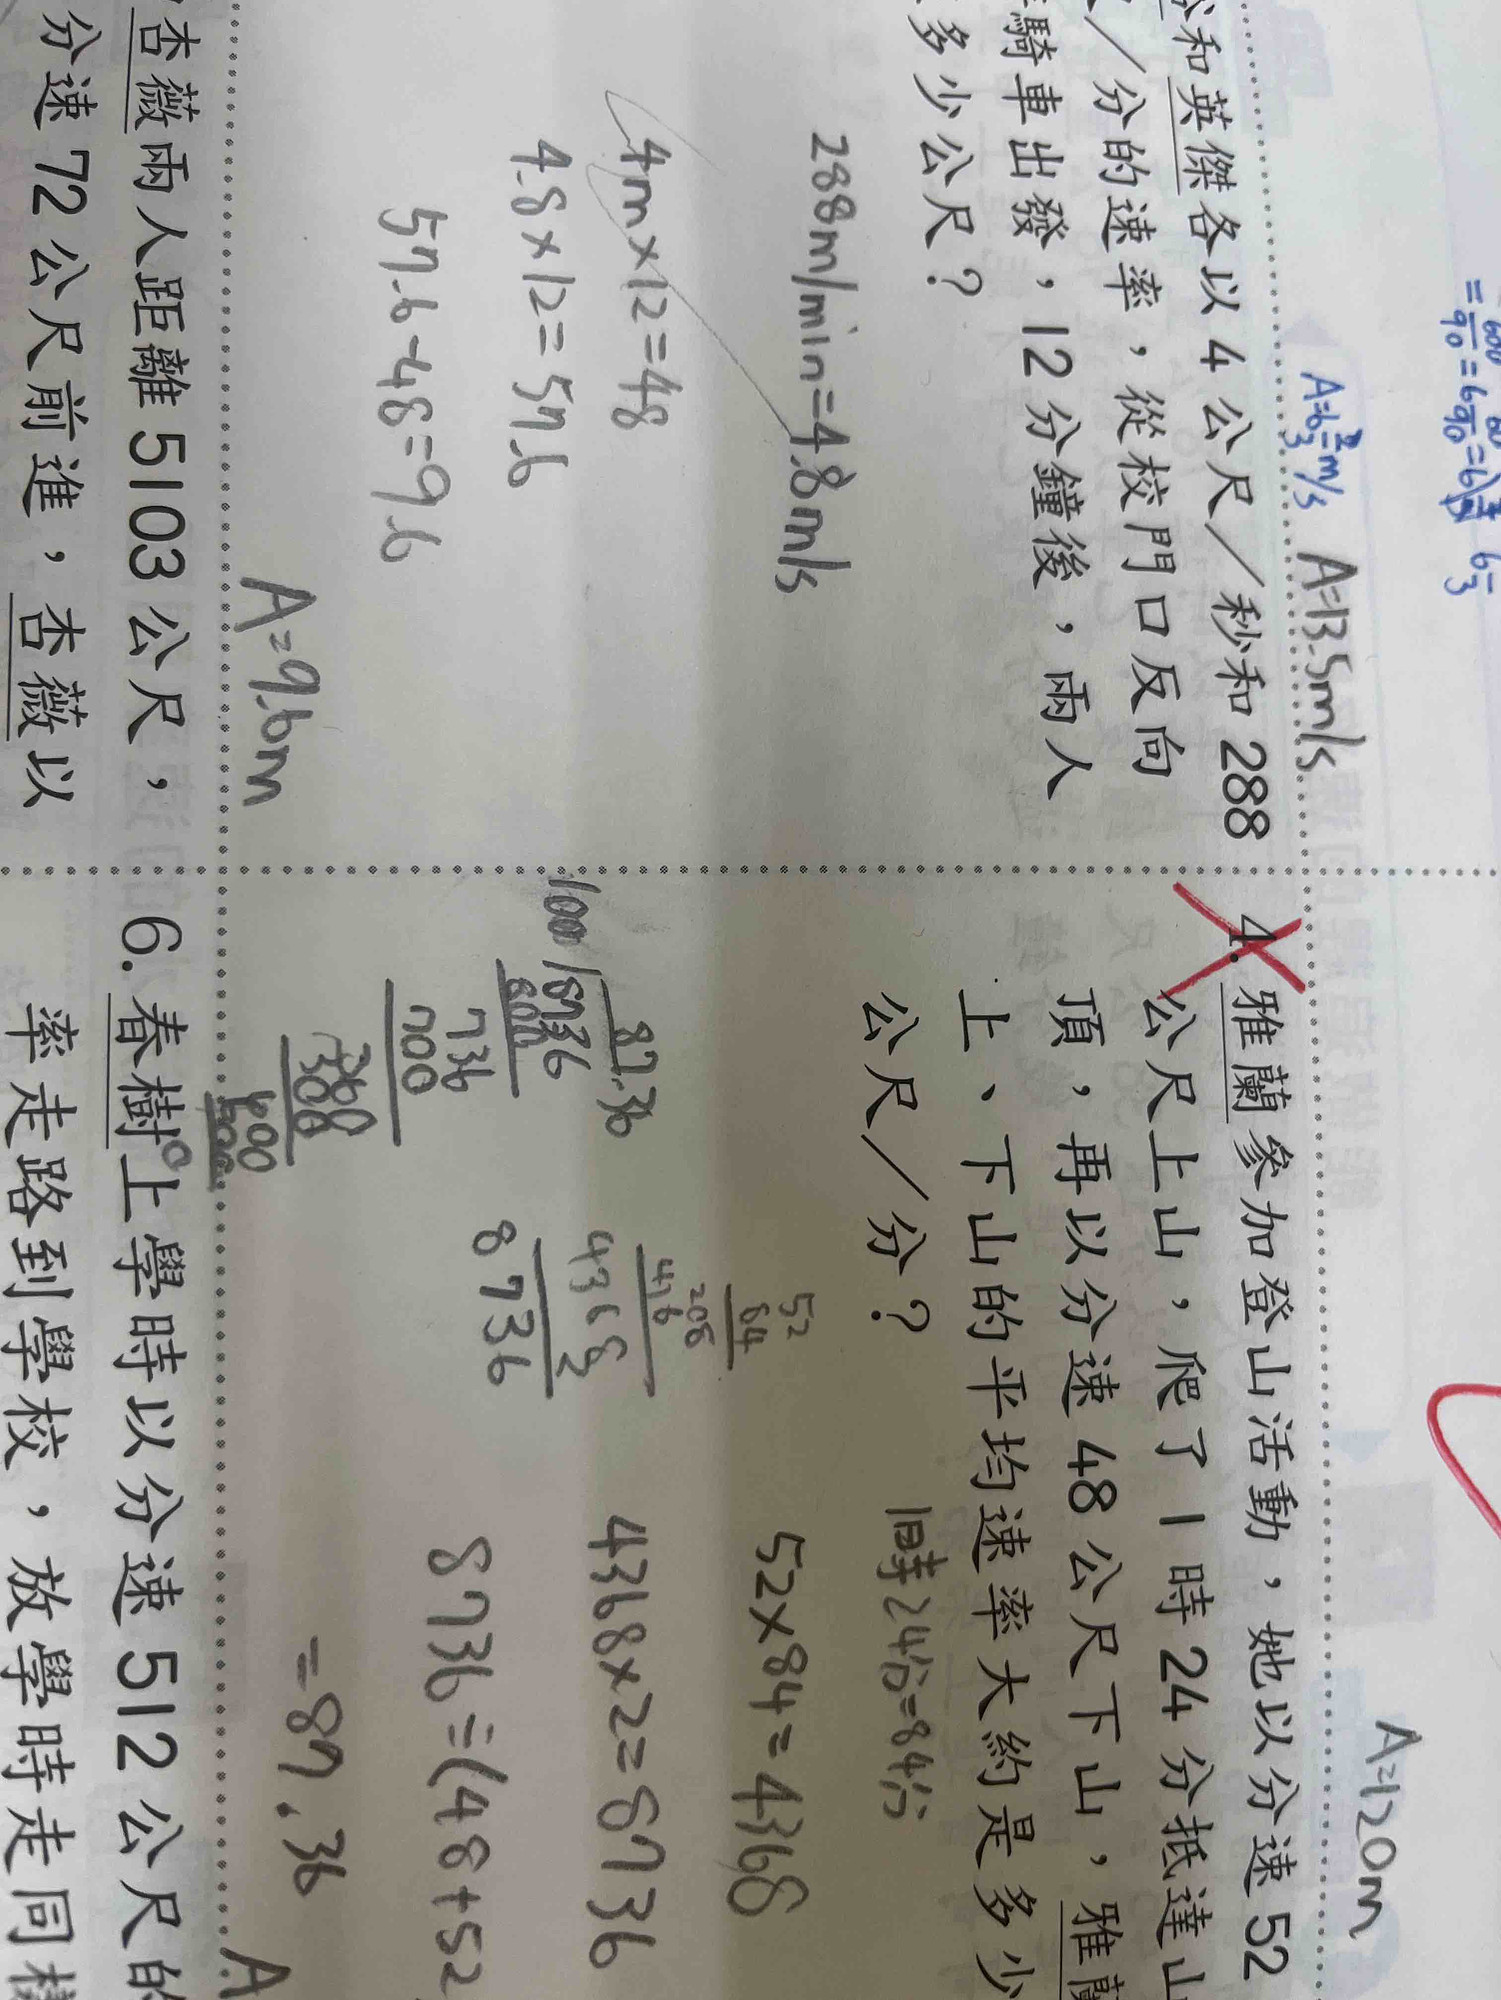 A=6⅔m/s
A=13.5m/s
和英傑各以 4 公尺／秒和 288
／分的速率，從校門口反向
騎車出發，12 分鐘後，兩人
多少公尺？
288m/min=4.8m/s
4m×12=48
4.8×12=57.6
57.6-48=9.6
A=9.6m
杏薇兩人距離 5103 公尺，
分速 72 公尺前進，杏薇以
A=120m
4. 雅蘭參加登山活動，她以分速 52
公尺上山，爬了 1 時 24 分抵達山
頂，再以分速 48 公尺下山，雅蘭
上、下山的平均速率大約是多少
公尺／分？
1時24分=84分
52
84
208
416
4368
2
8736
52×84=4368
4368×2=8736
8736÷(48+52
=87.36
87.36
100/8736
800
736
700
360
300
600
600
0
A
6. 春樹上學時以分速 512 公尺的
率走路到學校，放學時走同樣